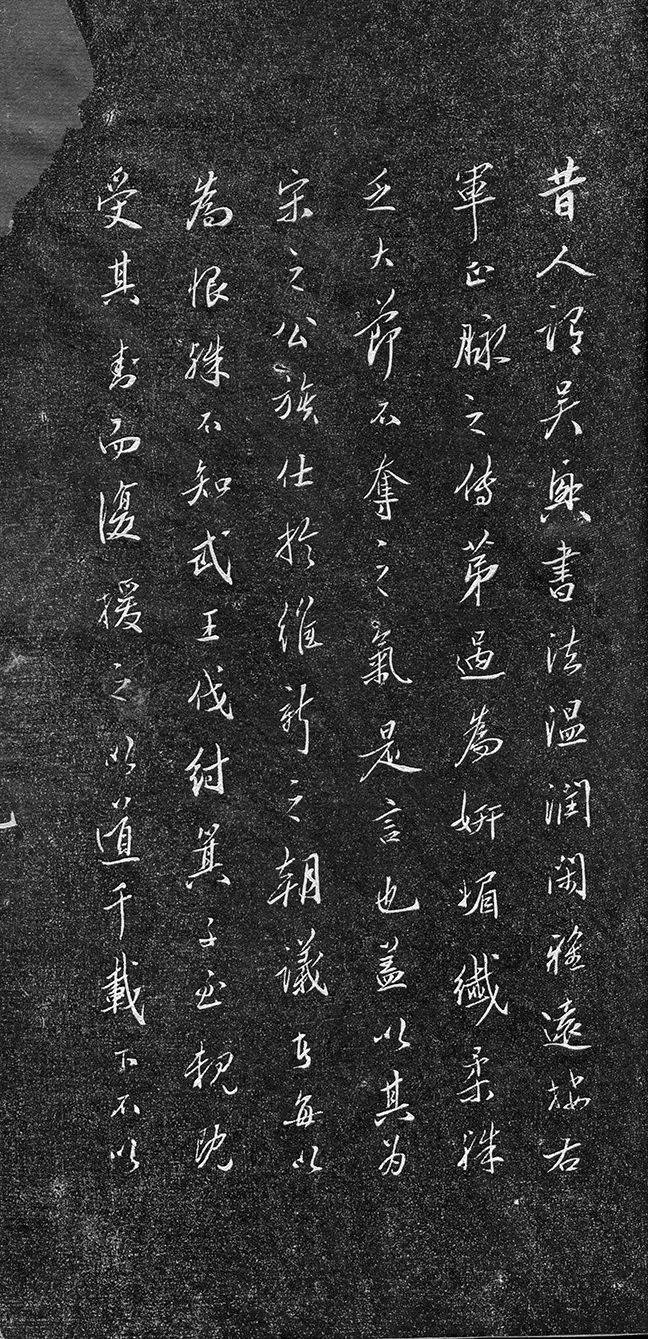 昔人謂吳興書法溫潤閑雅遠接右
軍正脉之傳第過為妍媚纖柔殊
乏大節不奪之氣是言也蓋以其为
宋之公族仕於維新之朝議者每以
為恨殊不知武王伐紂箕子至親既
受其封而復援之以道千載下不以